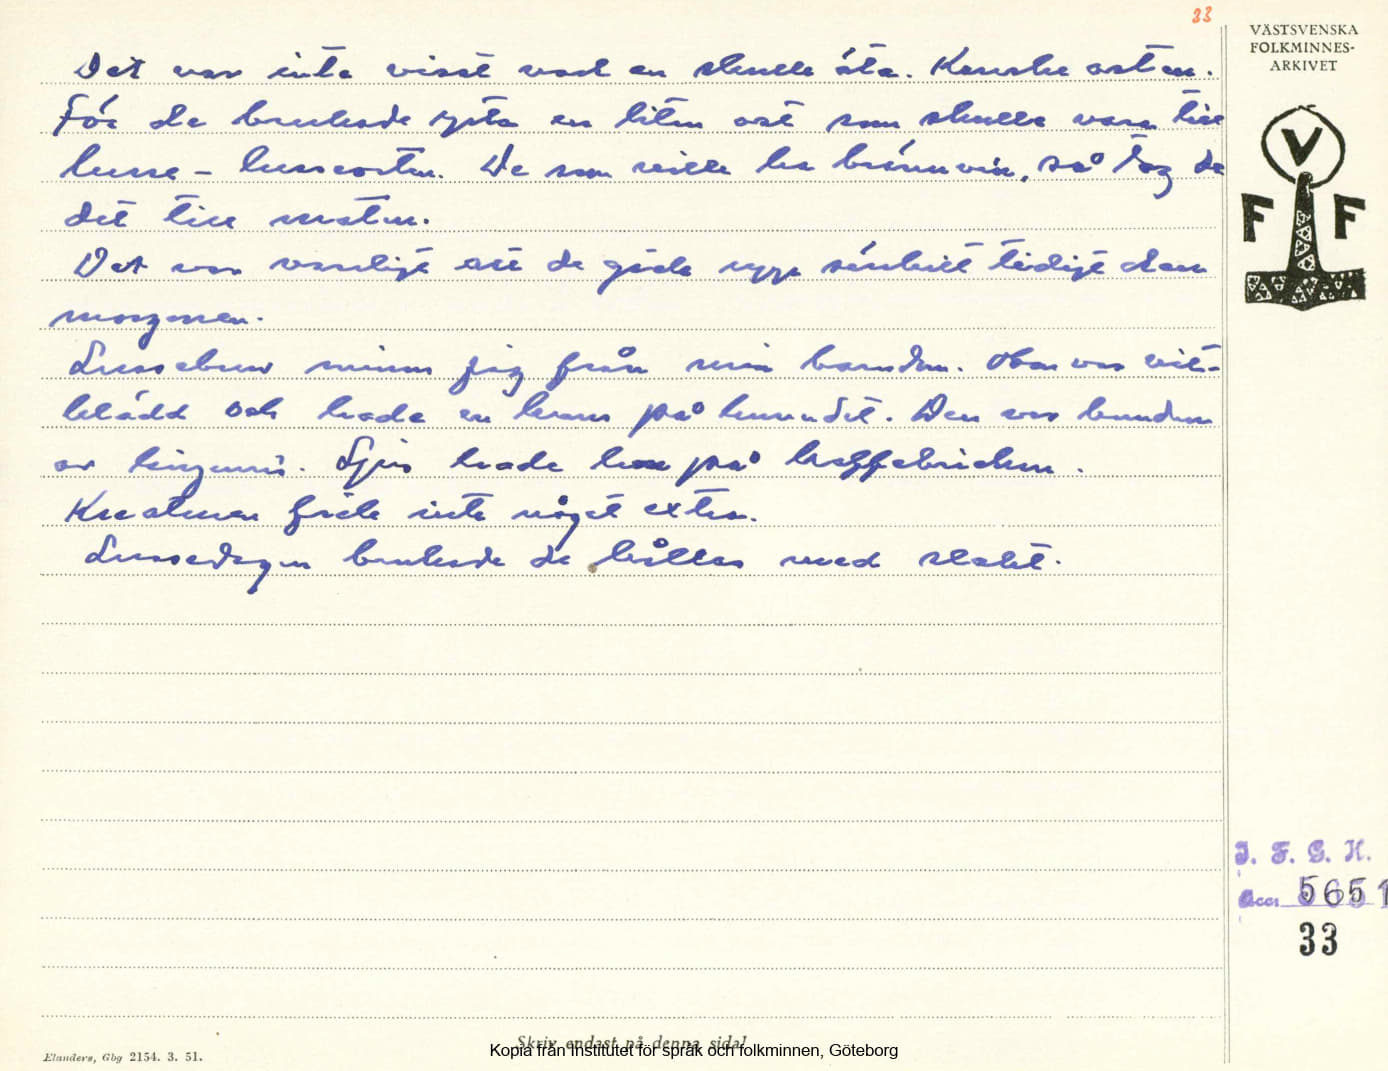 33
VÄSTSVENSKA
FOLKMINNES-
ARKIVET
V
F F
Det var inte visst vad en skulle äta. Kanske osten.
För de brukade ysta en liten ost som skulle vara till
lusse - lusseosten. De som ville ha brännvin, så tog de
det till maten.
Det var vanligt att de gick upp särskilt tidigt den
morgonen.
Lussebrud minns jag från min barndom. Hon var vit-
klädd och hade en krans på huvudet. Den var bunden
av lingonris. Ljus hade hon på kaffebrickan.
Kreaturen fick inte något extra.
Lussedagen brukade de hållas med slakt.
I. F. G. H.
Acc. 5651
33
Elanders, Gbg 2154. 3. 51.
Skriv endast på denna sida!
Kopia från Institutet för språk och folkminnen, Göteborg